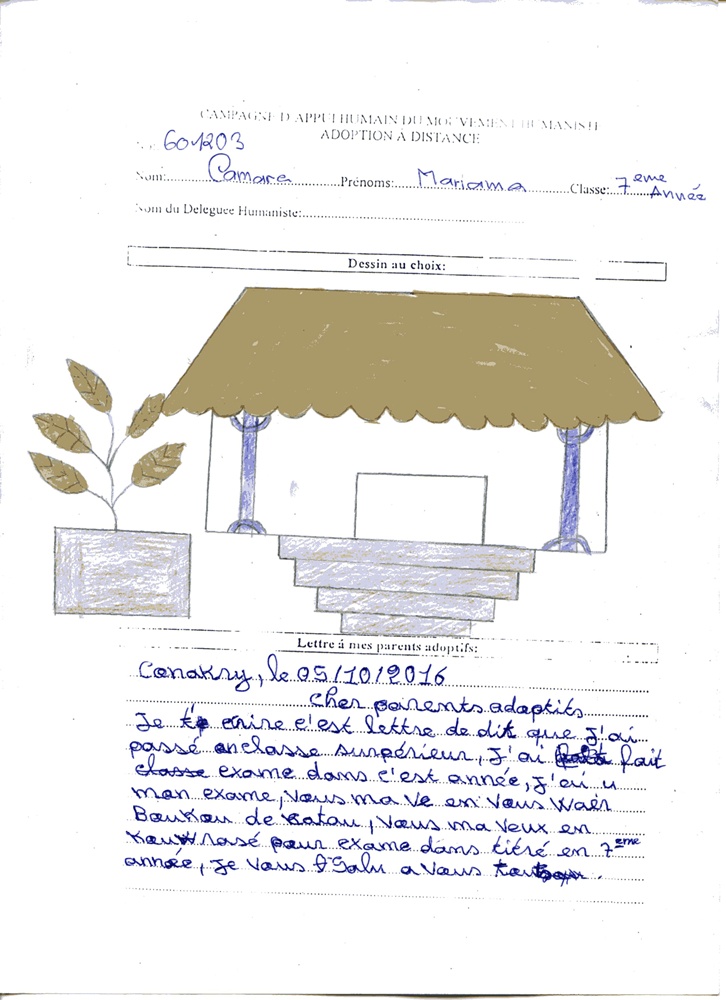 CAMPAGNE D'APPUI HUMAIN DU MOUVEMENT HUMANISTE
ADOPTION À DISTANCE
601203
Nom: Camara Prénoms: Mariama Classe: 7eme Année
Nom du Deleguee Humaniste:
Dessin au choix:
Lettre á mes parents adoptifs:
Conakry, le 05/10/2016
Cher parents adaptits
Je te crire c'est lettre de dit que j'ai
passé en classe surpérieur, j'ai fait
exame dans c'est année, j'ai u
mon exame, vous ma ve en vous
Boukou de, vous ma veux en
pour exame dans titré en 7eme
année, je vous Salu a vous